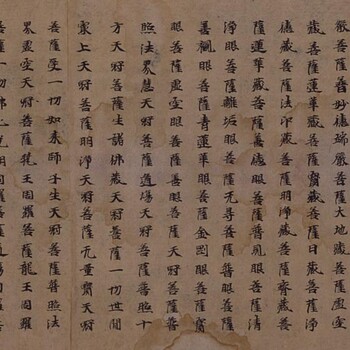 嚴菩薩普妙德端嚴菩薩大地藏菩薩虛空
藏菩薩蓮華藏菩薩寶藏菩薩日藏菩薩淨
德藏菩薩法印藏菩薩明淨藏菩薩齎藏菩
薩蓮華藏菩薩善德眼菩薩普見眼菩薩清
淨眼菩薩離垢眼菩薩无导眼菩薩普眼菩薩
善觀眼菩薩青蓮華眼菩薩金剛眼菩薩寶
眼菩薩虛空眼菩薩善眼菩薩天冠菩薩普
照法界慧天冠菩薩道場天冠菩薩普照十
方天冠菩薩生諸佛藏天冠菩薩一切世間
冣上天冠菩薩明淨天冠菩薩无量寶天冠
菩薩受一切如來師子坐天冠菩薩普照法
界虛空天冠菩薩龍王周羅菩薩龍王周羅
菩薩一切佛光明周羅菩薩道場周羅菩